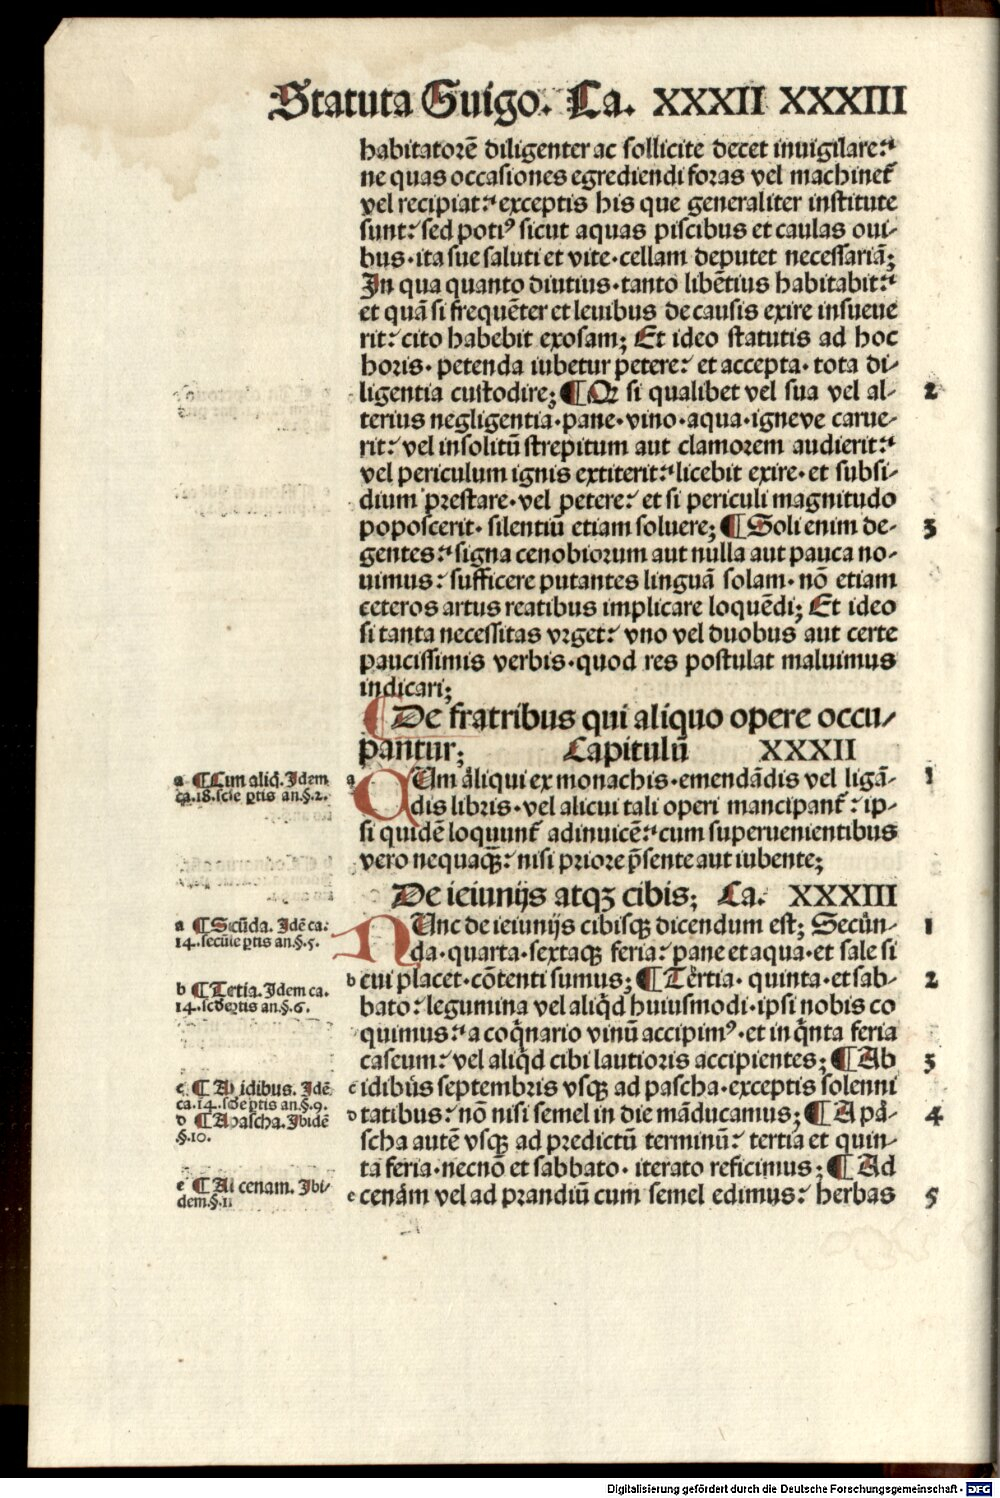 Statuta Guigo. Ca. XXXII XXXIII
habitatorē diligenter ac sollicite decet inuigilare:
ne quas occasiones egrediendi foras vel machinet᷑
vel recipiat: exceptis his que generaliter institute
sunt: sed potiꝰ sicut aquas piscibus et caulas oui-
bus·ita sue saluti et vite·cellam deputet necessariā;
In qua quanto diutius·tanto libētius habitabit:
et quā si frequēter et leuibus de causis exire insueue
rit: cito habebit exosam; Et ideo statutis ad hoc
horis·petenda iubetur petere: et accepta·tota di-
ligentia custodire; ¶Qꝛ si qualibet vel sua vel al- 2
terius negligentia·pane·vino·aqua·igneve carue-
rit: vel insolitū strepitum aut clamorem audierit:
vel periculum ignis extiterit: licebit exire·et subsi-
dium prestare·vel petere: et si periculi magnitudo
poposcerit·silentiū etiam soluere; ¶Soli enim de- 3
gentes: signa cenobiorum aut nulla aut pauca no-
uimus: sufficere putantes linguā solam·nō etiam
ceteros artus reatibus implicare loquēdi; Et ideo
si tanta necessitas vrget: vno vel duobus aut certe
paucissimis verbis·quod res postulat maluimus
indicari;
¶De fratribus qui aliquo opere occu-
pantur; Capitulū XXXII
a ¶Cum aliq̄. Idem
ca.18.scḋe ꝑtis an.§.2.
a QUm aliqui ex monachis·emendādis vel ligā- 1
dis libris·vel alicui tali operi mancipant᷑: ip-
si quidē loquunt᷑ adinuicē: cum superuenientibus
vero nequaqꝫ: nisi priore p̄sente aut iubente;
De ieiunijs atqꝫ cibis; Ca. XXXIII
a ¶Scḋa. Idē ca:
14.secūde ꝑtis an.§.5.
NUnc de ieiunijs cibisqꝫ dicendum est; Secun- 1
da·quarta·sextaqꝫ feria: pane et aqua·et sale si
b ¶Tertia. Idem ca.
14.scḋe ꝑtis an.§.6.
b cui placet·cōtenti sumus; ¶Tertia·quinta·et sab- 2
bato: legumina vel aliq̇d huiusmodi·ipsi nobis co
quimus: a coq̇nario vinū accipimꝰ·et in q̇nta feria
caseum: vel aliq̇d cibi lautioris accipientes; ¶Ab 3
c ¶Ab idibus. Idē
ca.14.scḋe ꝑtis an.§.9.
c idibus septembris vsqꝫ ad pascha·exceptis solenni
d ¶A pascha. Ibidē
§.10.
d tatibus: nō nisi semel in die māducamus; ¶A pa- 4
scha autē vsqꝫ ad predictū terminū: tertia et quin-
ta feria·necnō et sabbato·iterato reficimus; ¶Ad
e ¶Ad cenam. Ibi-
dem.§.11
e cenam vel ad prandiū cum semel edimus: herbas 5
Digitalisierung gefördert durch die Deutsche Forschungsgemeinschaft - DFG